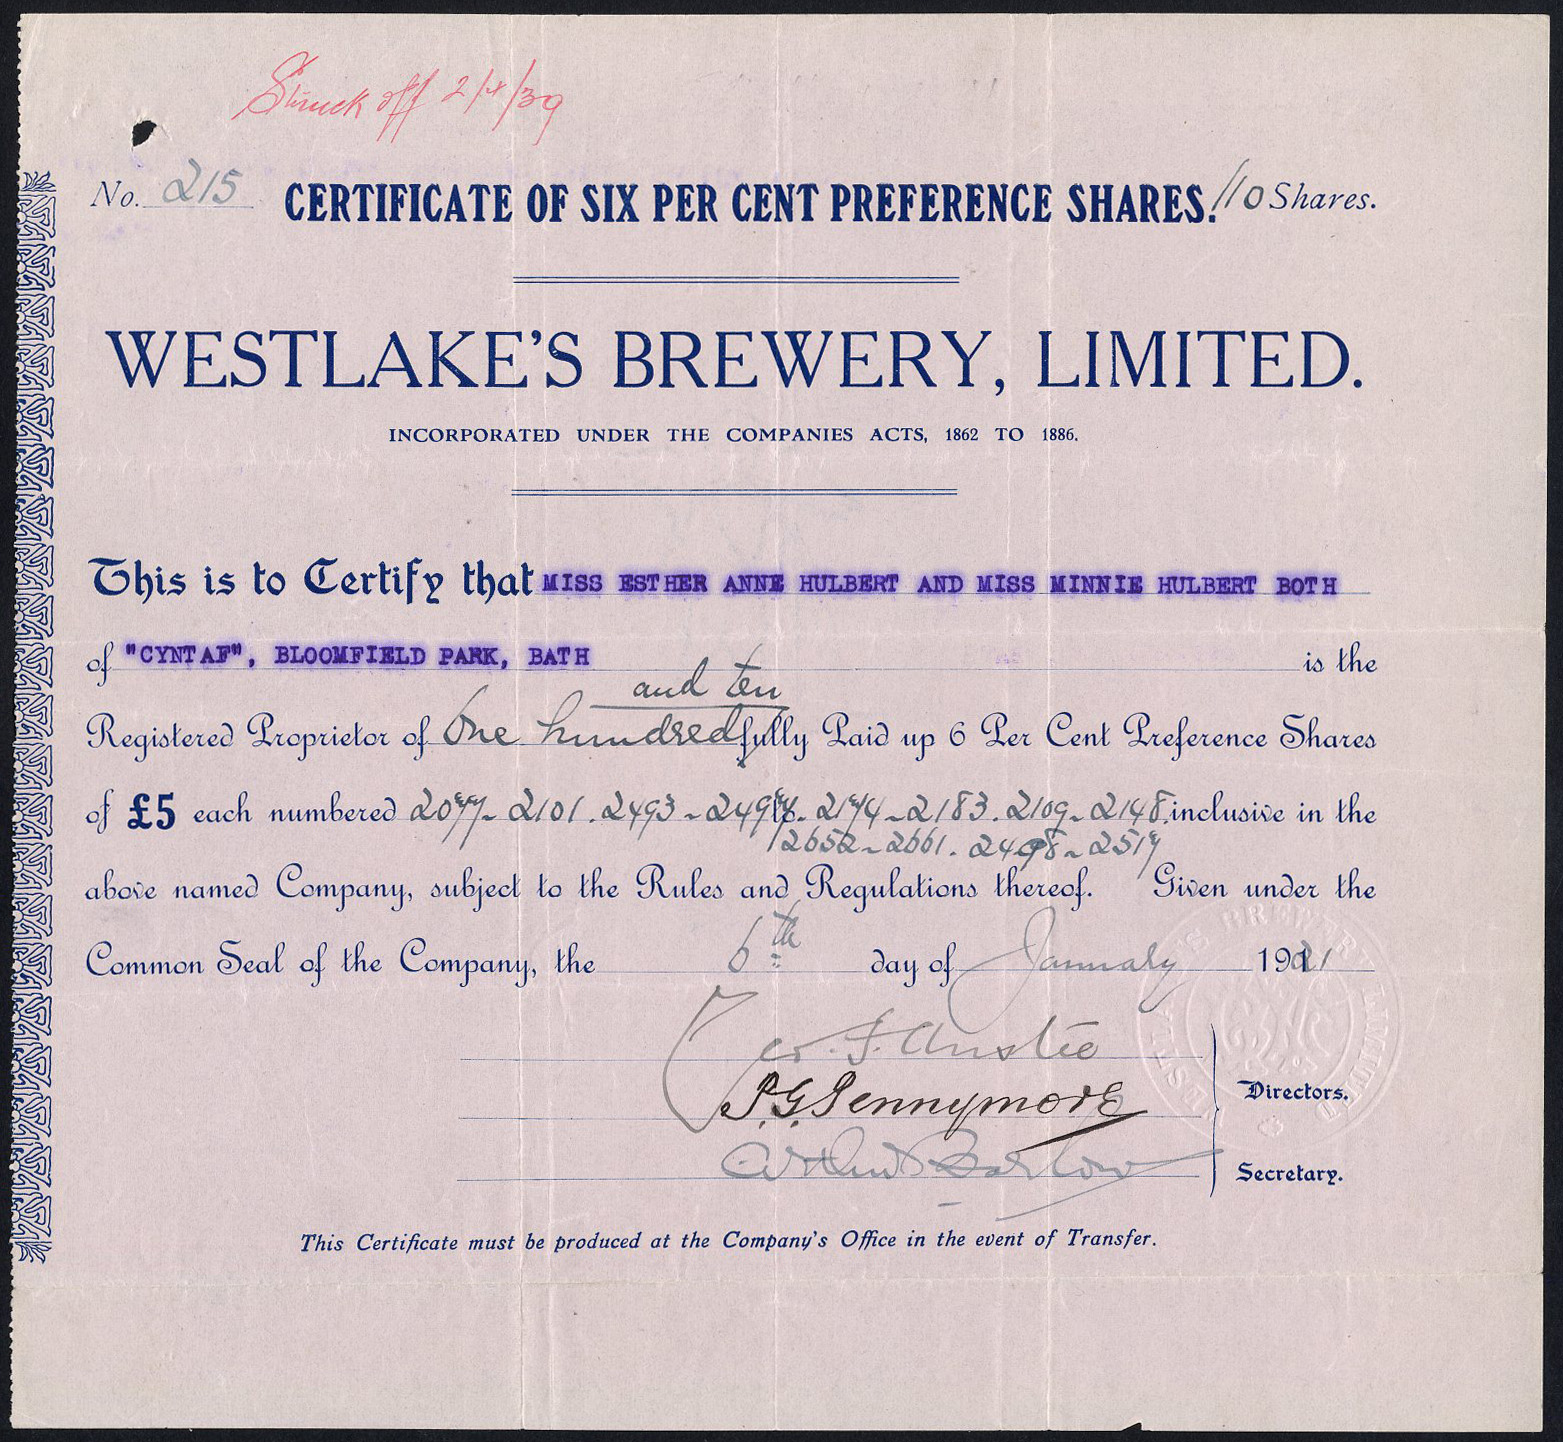 Struck off 2/4/39
No. 215 CERTIFICATE OF SIX PER CENT PREFERENCE SHARES. 110 Shares.
WESTLAKE'S BREWERY, LIMITED.
INCORPORATED UNDER THE COMPANIES ACTS, 1862 TO 1886.
This is to Certify that MISS ESTHER ANNE HULBERT AND MISS MINNIE HULBERT BOTH
of "CYNTAF", BLOOMFIELD PARK, BATH is the
and ten
Registered Proprietor of One hundred fully Paid up 6 Per Cent Preference Shares
of £5 each numbered 2077-2101. 2493-2497. 2174-2183. 2109-2148. inclusive in the
2652-2661. 2498-2517
above named Company, subject to the Rules and Regulations thereof. Given under the
Common Seal of the Company, the 6th day of January 1921
Geo. F. Austie
P. G. Pennymore
Directors.
Arthur Barlow
Secretary.
This Certificate must be produced at the Company's Office in the event of Transfer.